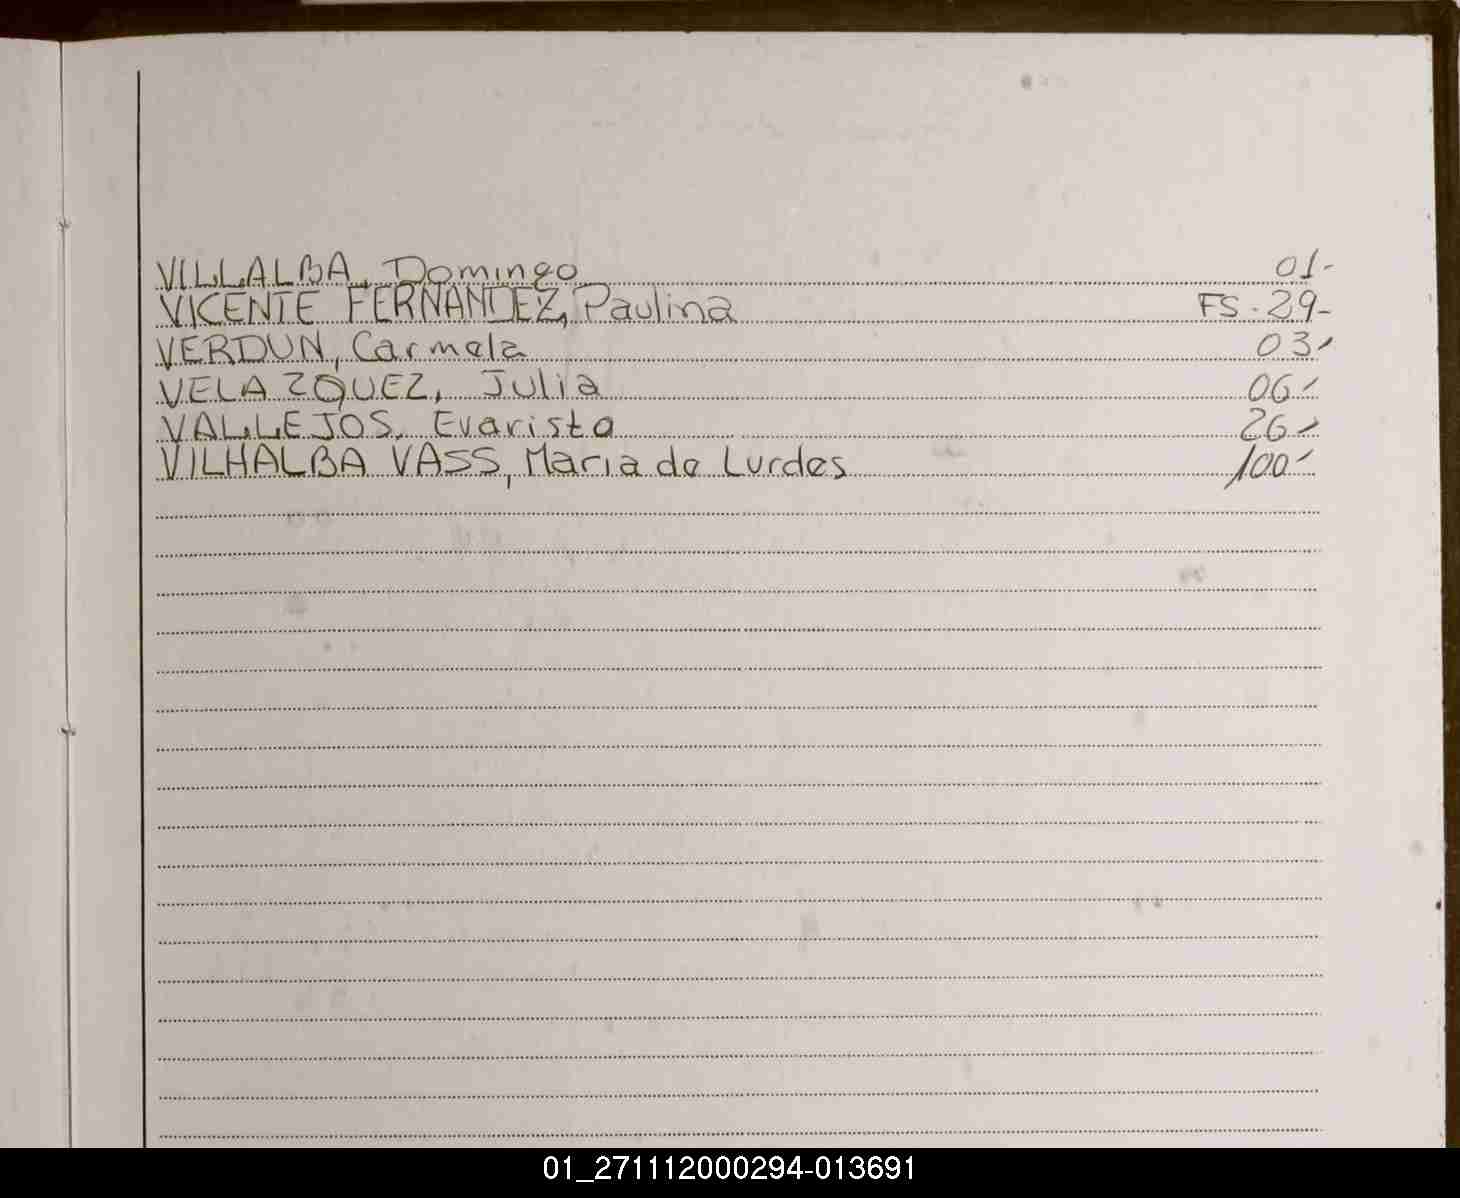 VILLALBA, Domingo 01-
VICENTE FERNANDEZ, Paulina FS. 29-
VERDUN, Carmela 03-
VELAZQUEZ, Julia 06-
VALLEJOS, Evaristo 26-
VILHALBA VASS, Maria de Lurdes 100-
01_271112000294-013691